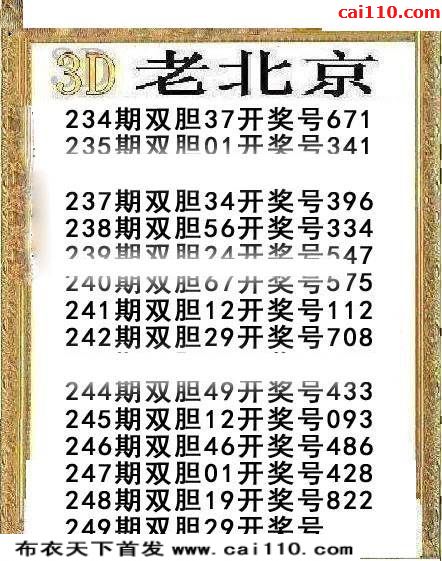 cai110.com
3D 老北京
234期双胆37开奖号671
235期双胆01开奖号341
237期双胆34开奖号396
238期双胆56开奖号334
239期双胆24开奖号547
240期双胆67开奖号575
241期双胆12开奖号112
242期双胆29开奖号708
244期双胆49开奖号433
245期双胆12开奖号093
246期双胆46开奖号486
247期双胆01开奖号428
248期双胆19开奖号822
249期双胆29开奖号
布衣天下首发 www.cai110.com